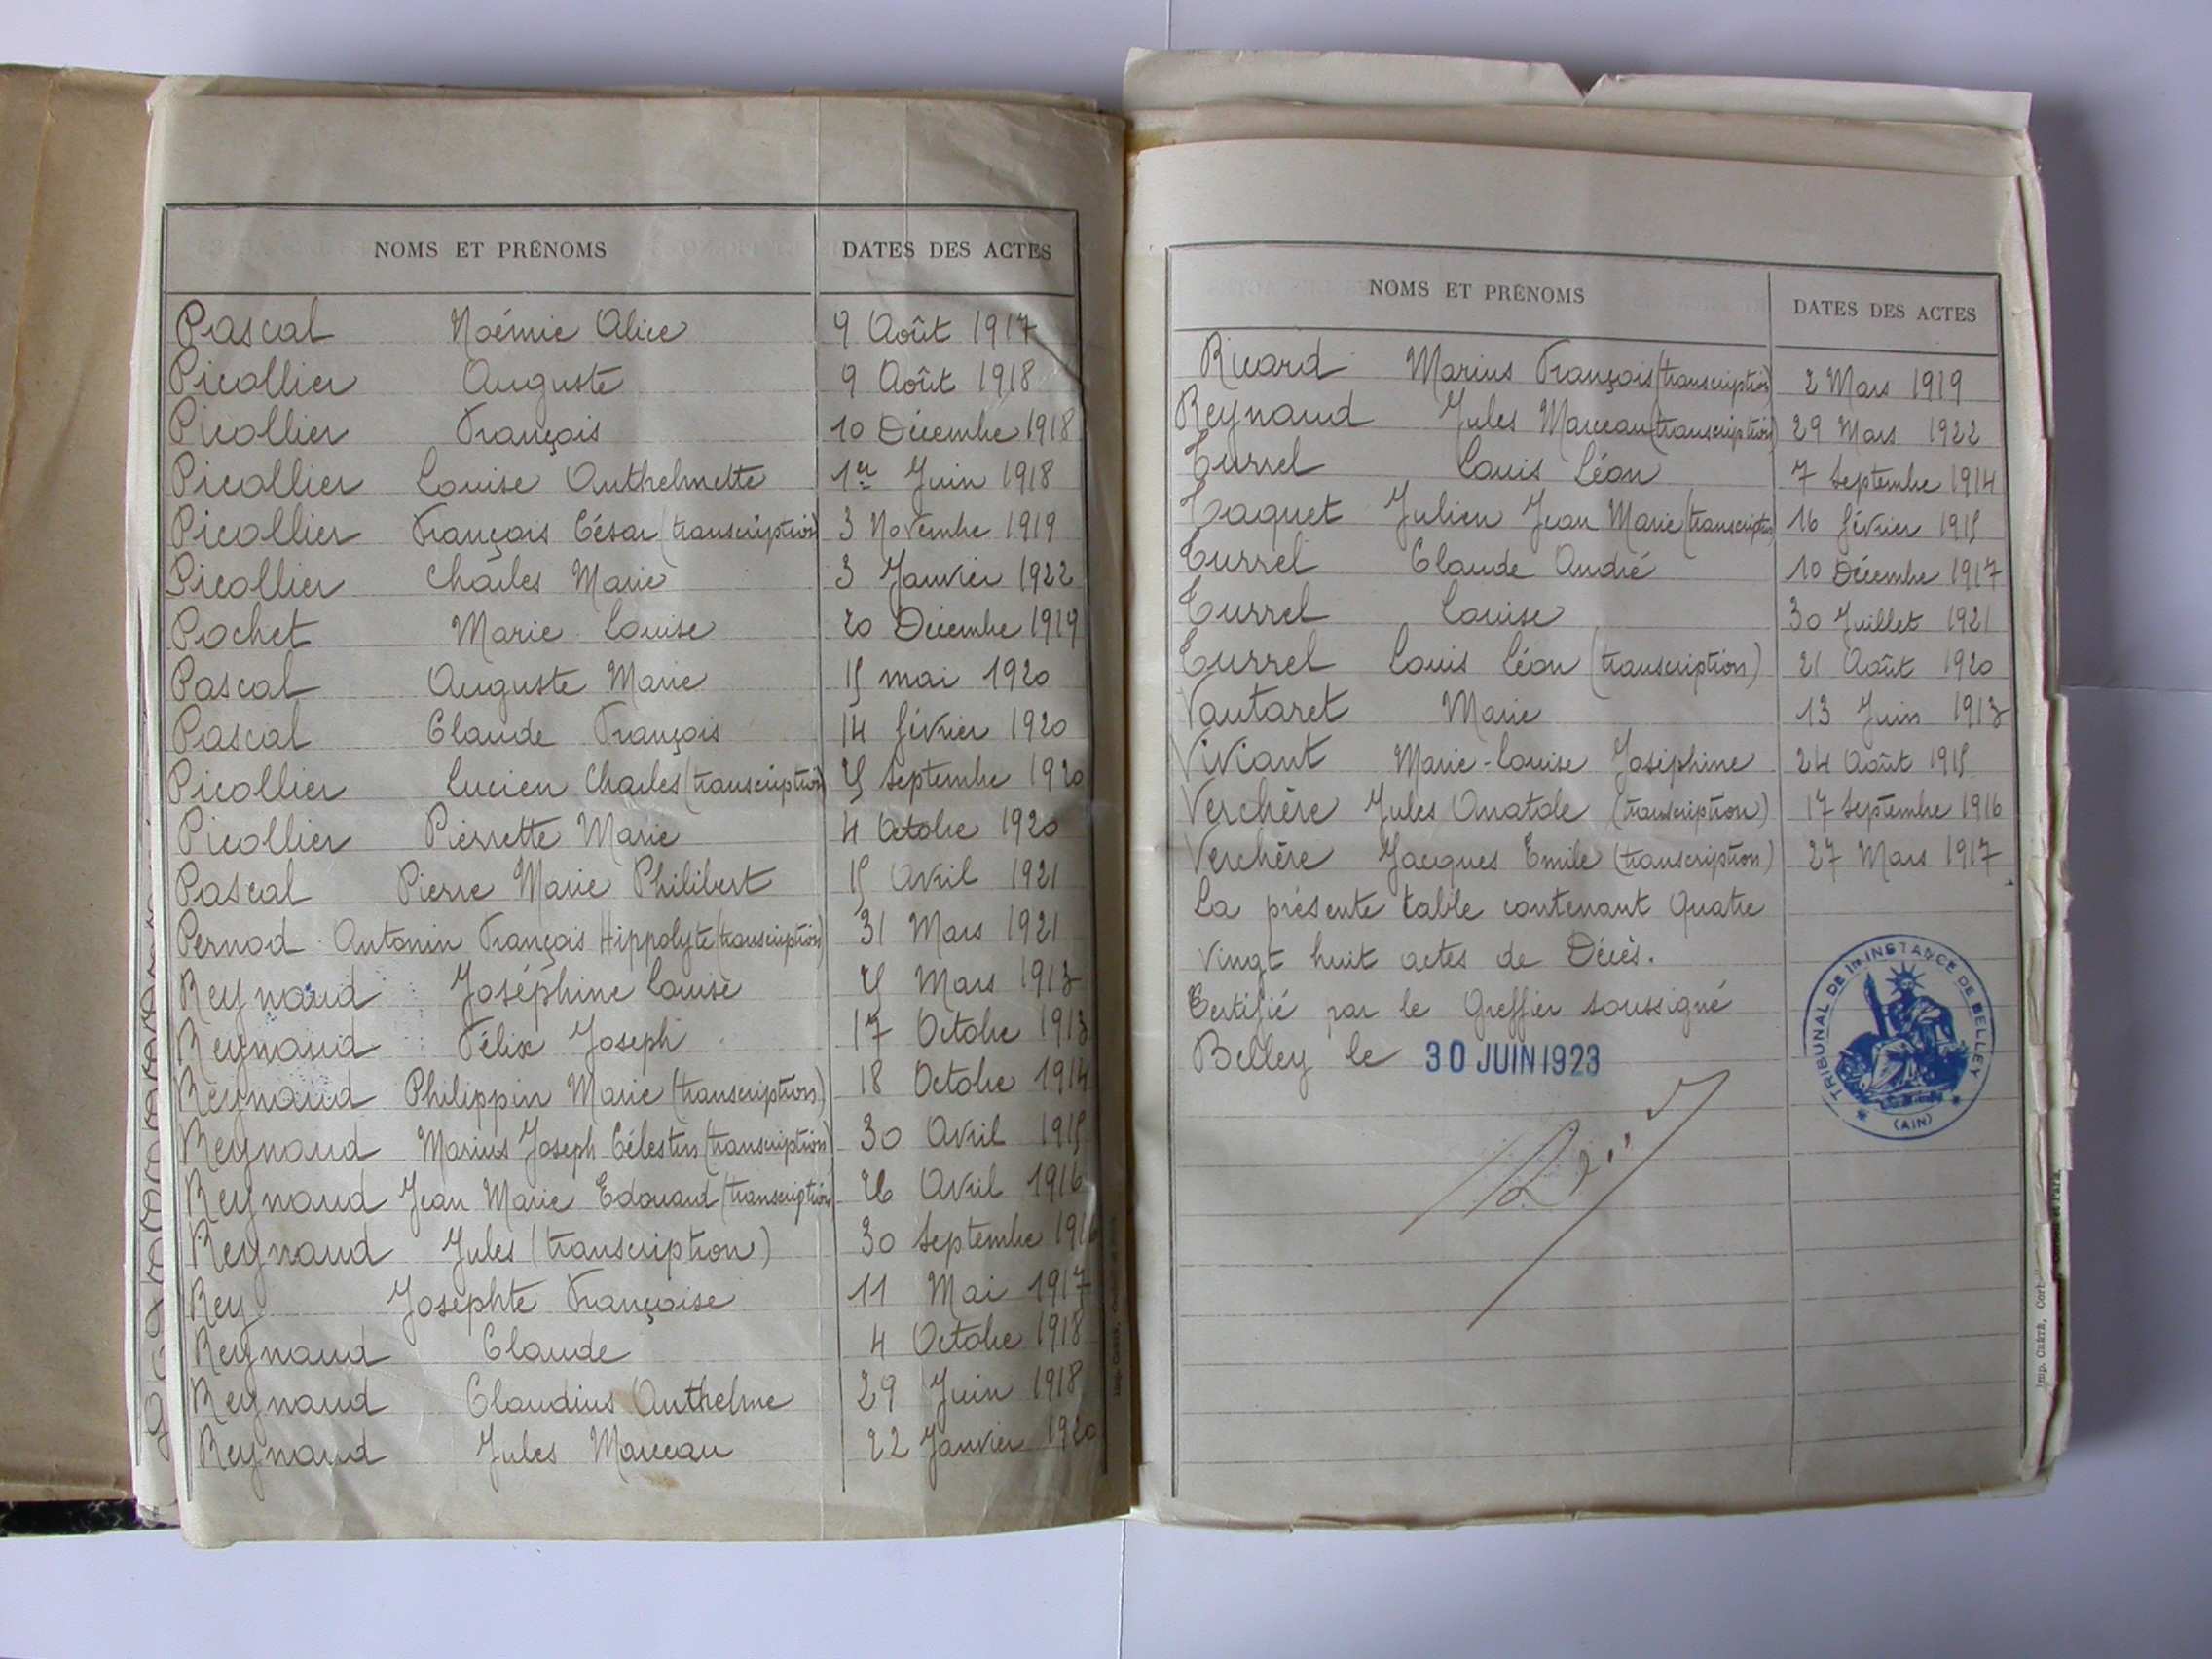 NOMS ET PRÉNOMS DATES DES ACTES
Pascal Noémie Alice 9 Août 1917
Picollier Auguste 9 Août 1918
Picollier François 10 Décembre 1918
Picollier Louise Anthelmette 1er Juin 1918
Picollier François César (transcription) 3 Novembre 1919
Picollier Charles Marie 3 Janvier 1922
Pochet Marie Louise 20 Décembre 1919
Pascal Auguste Marie 15 mai 1920
Pascal Claude François 14 février 1920
Picollier Lucien Charles (transcription) 25 septembre 1920
Picollier Pierrette Marie 4 Octobre 1920
Pascal Pierre Marie Philibert 15 Avril 1921
Pernod Antonin François Hippolyte (transcription) 31 Mars 1921
Reynaud Joséphine Louise Mars 1913
Reynaud Félix Joseph 17 Octobre 1913
Reynaud Philippin Marie (transcription) 18 Octobre 1914
Reynaud Marius Joseph Célestin (transcription) 30 Avril 1915
Reynaud Jean Marie Edouard (transcription) 26 Avril 1916
Reynaud Jules (transcription) 30 septembre 1916
Rey Josephte Françoise 11 Mai 1917
Reynaud Claude 4 Octobre 1918
Reynaud Claudius Anthelme 29 Juin 1918
Reynaud Jules Marceau 22 Janvier 1920
NOMS ET PRÉNOMS DATES DES ACTES
Ricard Marius François (transcription) 2 Mars 1919
Reynaud Jules Marceau (transcription) 29 Mars 1922
Turrel Louis Léon 7 septembre 1914
Taquet Julien Jean Marie (transcription) 16 février 1915
Turrel Claude André 10 Décembre 1917
Turrel Louise 30 Juillet 1921
Turrel Louis Léon (transcription) 21 Août 1920
Vautaret Marie 13 Juin 1913
Viviant Marie-Louise Joséphine 24 Août 1915
Verchère Jules Anatole (transcription) 17 septembre 1916
Verchère Jacques Emile (transcription) 27 Mars 1917
La présente table contenant Quatre
Vingt huit actes de Décès.
Certifié par le Greffier soussigné
Belley le 30 JUIN 1923
TRIBUNAL DE 1re INSTANCE DE BELLEY
(AIN)